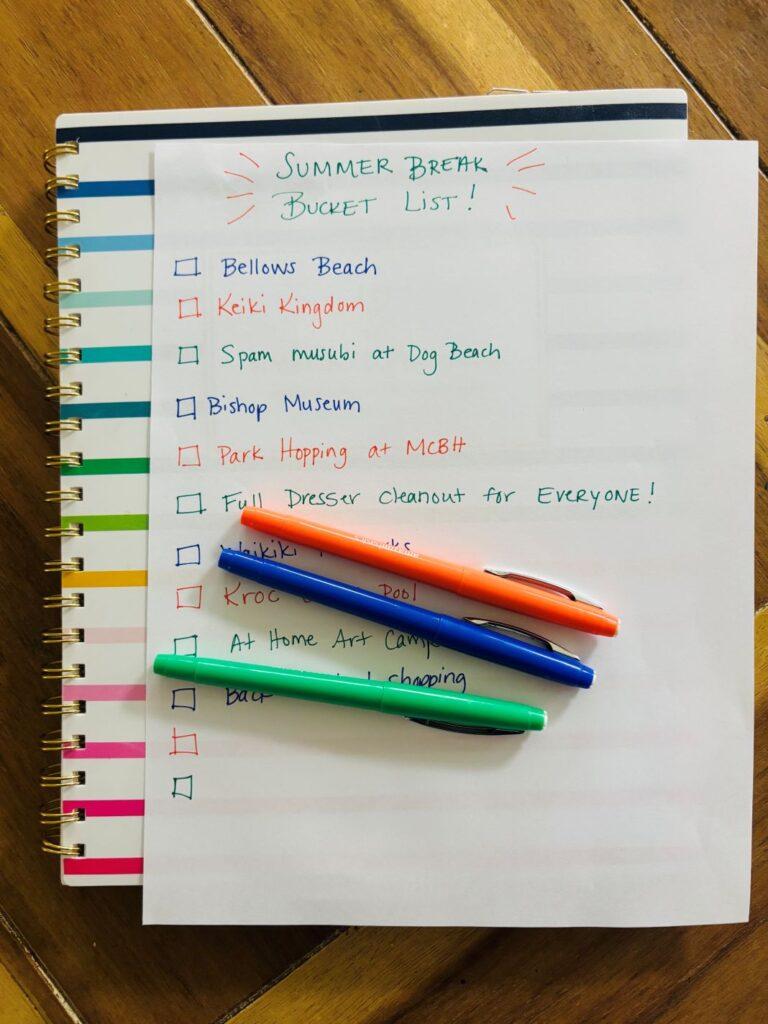 SUMMER BREAK
BUCKET LIST!
Bellows Beach
Keiki Kingdom
Spam musubi at Dog Beach
Bishop Museum
Park Hopping at MCBH
Full Dresser cleanout for EVERYONE!
Kroc Pool
At Home Art Camp
shopping